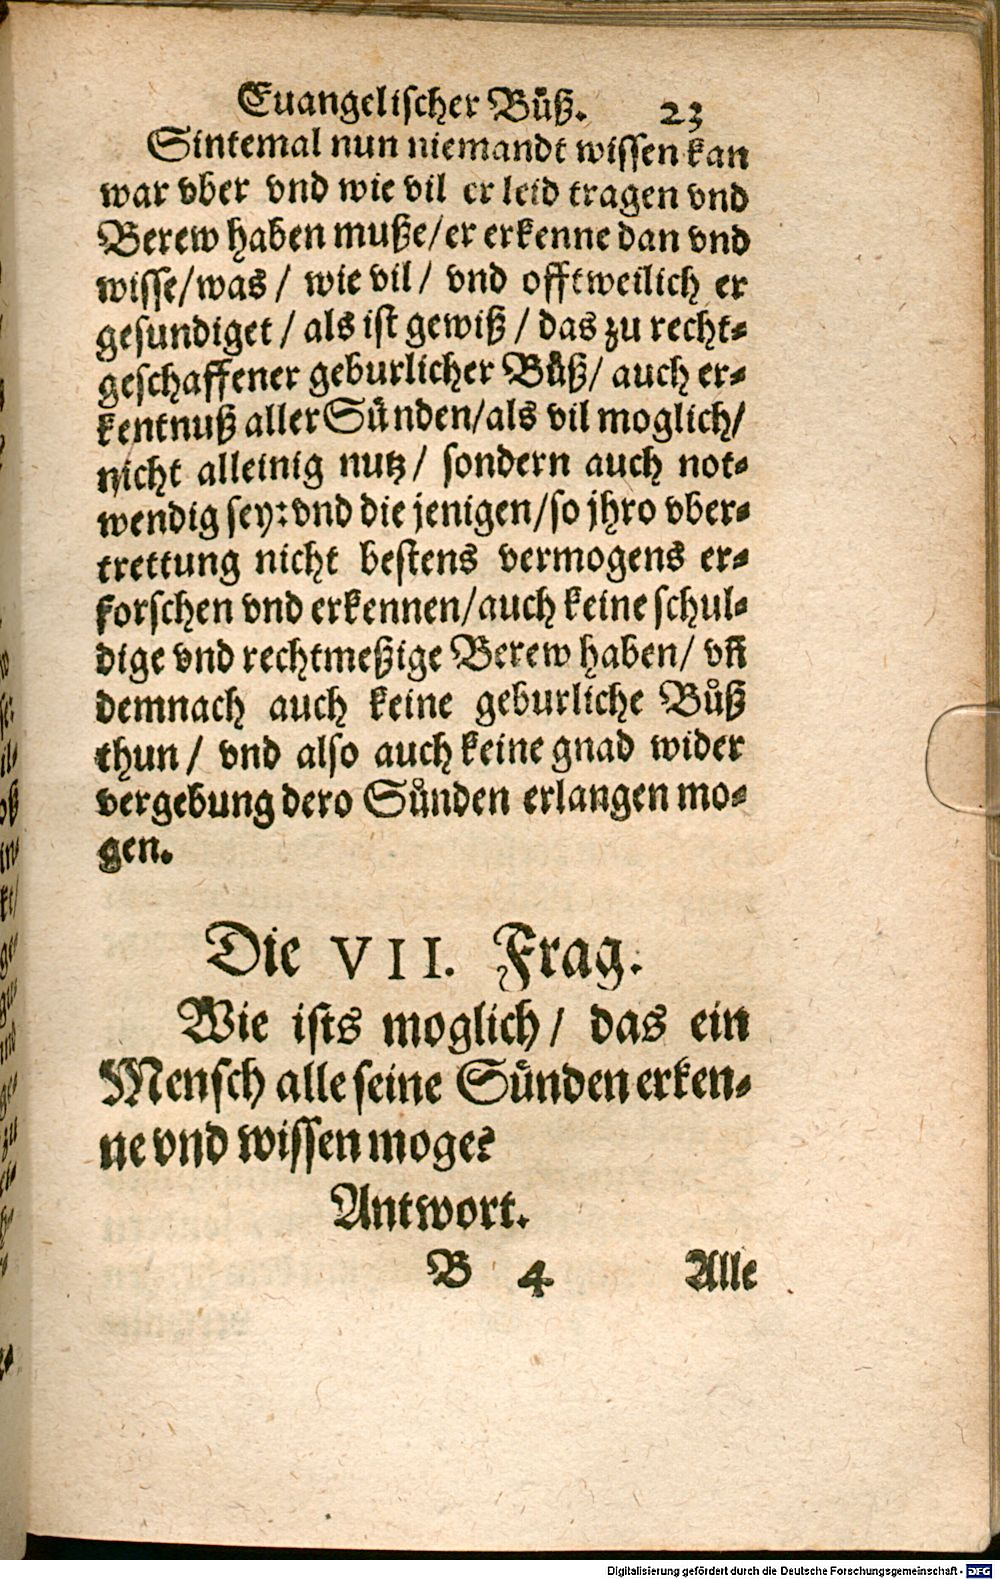 Euangelischer Bůß. 23
Sintemal nun niemandt wissen kan
war vber vnd wie vil er leid tragen vnd
Berew haben muße/er erkenne dan vnd
wisse/was/ wie vil/ vnd offtweilich er
gesundiget/ als ist gewiß/ das zu recht-
geschaffener geburlicher Bůß/ auch er-
kentnuß aller Sůnden/als vil moglich/
nicht alleinig nutz/ sondern auch not-
wendig sey: vnd die jenigen/so jhro vber-
trettung nicht bestens vermogens er-
forschen vnd erkennen/auch keine schul-
dige vnd rechtmeßige Berew haben/ vñ
demnach auch keine geburliche Bůß
thun/ vnd also auch keine gnad wider
vergebung dero Sůnden erlangen mo-
gen.
Die VII. Frag.
Wie ists moglich/ das ein
Mensch alle seine Sůnden erken-
ne vnd wissen moge?
Antwort.
B 4 Alle
Digitalisierung gefördert durch die Deutsche Forschungsgemeinschaft - DFG